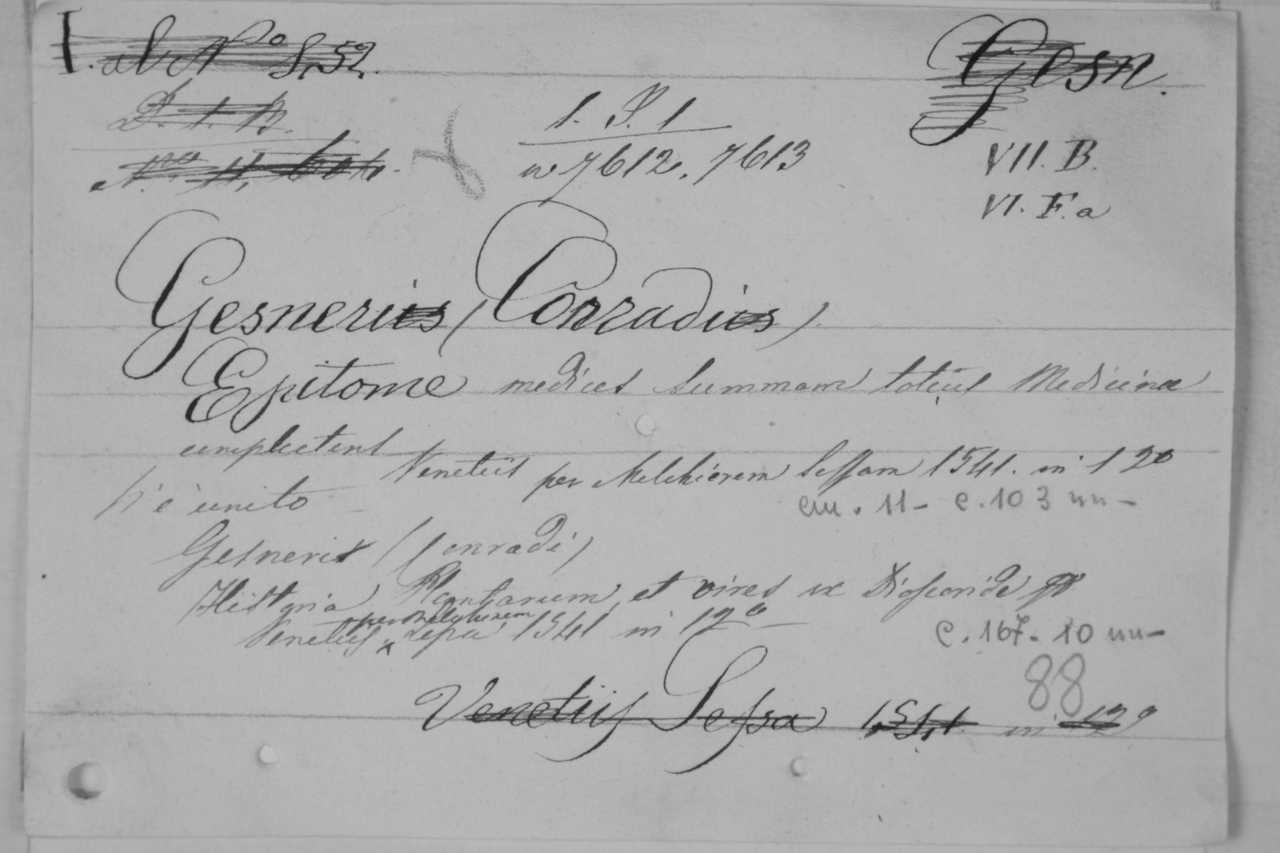 I. al No S,52.
Gesn.
1. P. 1
n 7612. 7613
VII. B.
VI. F. a
Gesnerius (Conradius)
Epitome medices summam totius Medicinæ
complectens
Venetiis per Melchiorem Sessam 1541. in 120
Vi è unito
cm. 11 - c. 103 nn -
Gesneri (Conradi)
Historia Plantarum et vires ex Dioscoride
per Melchiorem
Venetiis x Sessa 1541 in 120
c. 167 - 10 nn -
88
Venetiis Sessa 1541. in 120